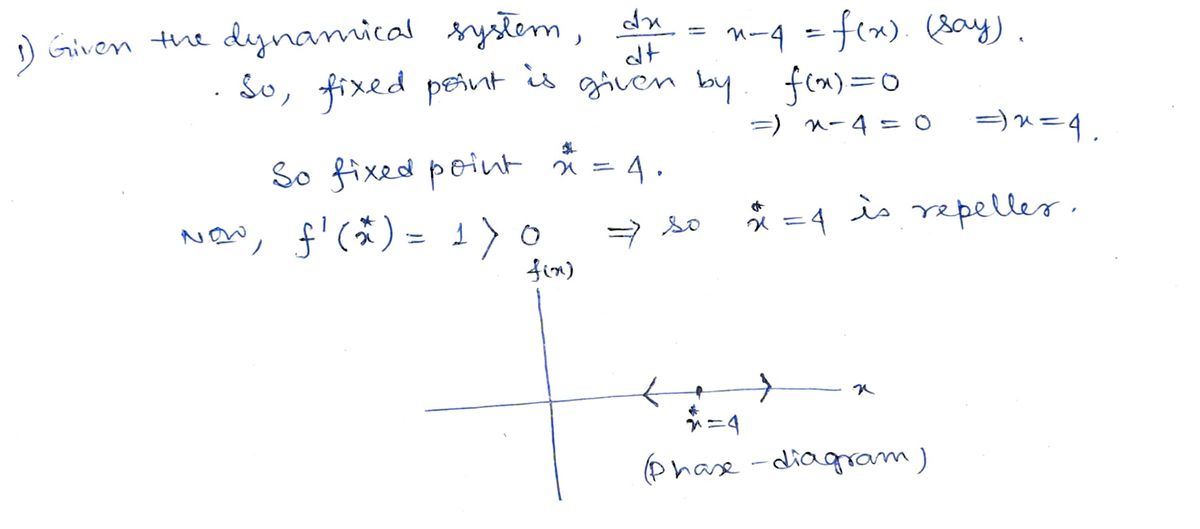 1) Given the dynamical system, dx/dt = x-4 = f(x). (say).
. So, fixed point is given by. f(x)=0
=> x-4=0 => x=4.
So fixed point x* = 4.
Now, f'(x*) = 1 > 0 => so x* = 4 is repeller.
f(x)
x
x* = 4
(phase-diagram)